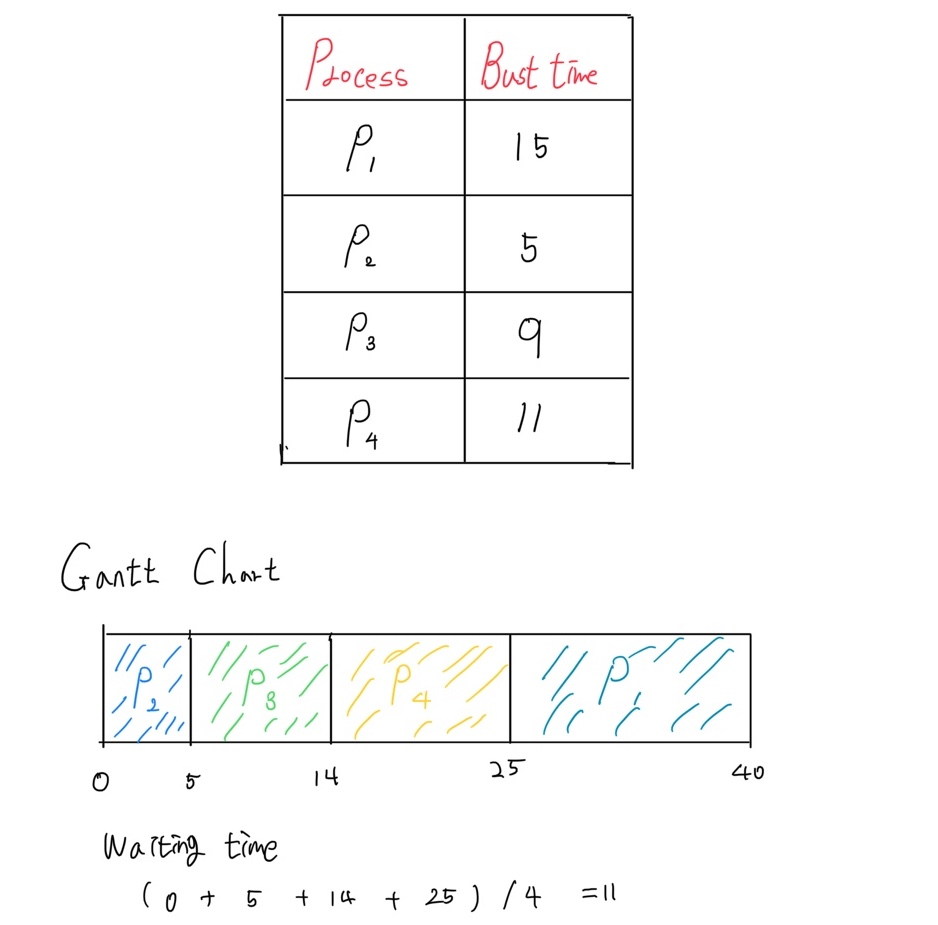 Process Bust time
P1 15
P2 5
P3 9
P4 11
Gantt Chart
P2 P3 P4 P1
0 5 14 25 40
Waiting time
(0 + 5 + 14 + 25) / 4 = 11